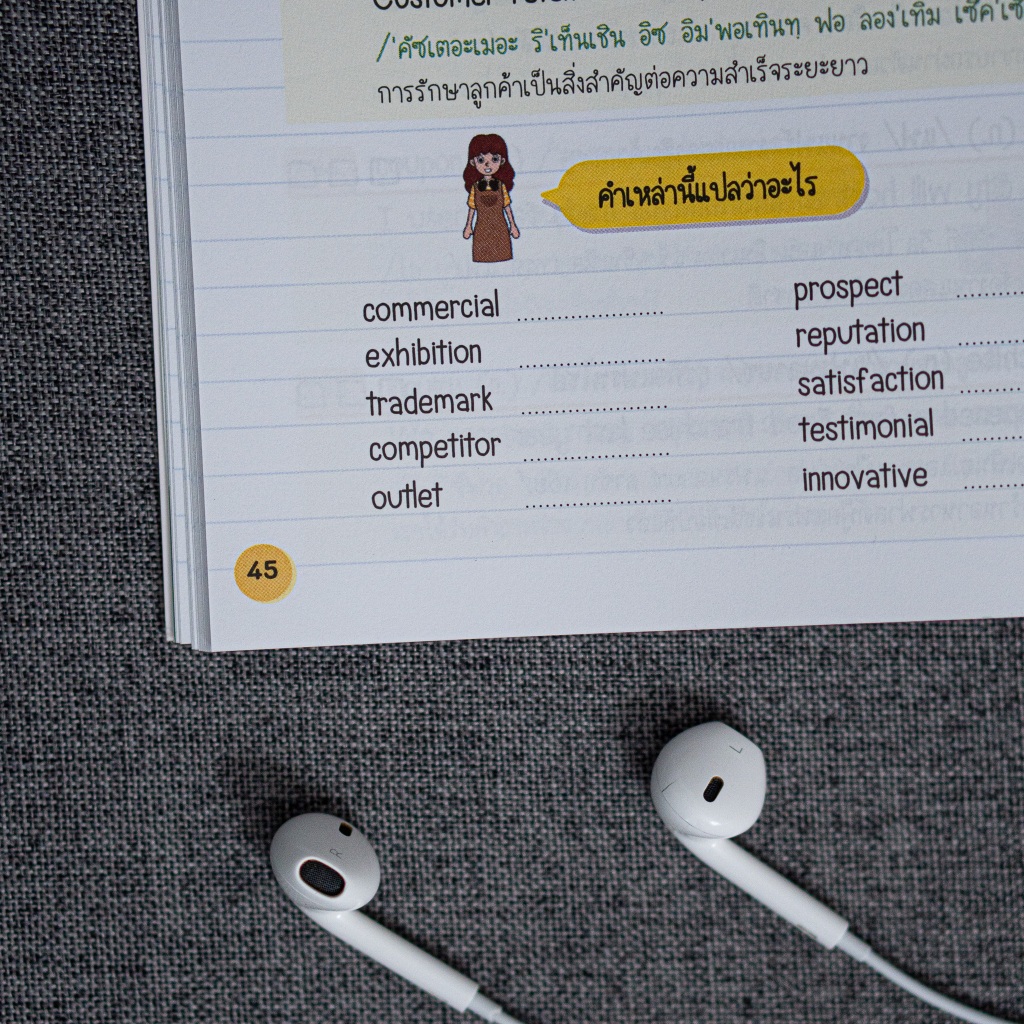 Customer
/'คัซเตอะเมอะ ริ'เท็นเชิน อิซ อิม'พอเทินทฺ ฟอ ลอง'เทิม
การรักษาลูกค้าเป็นสิ่งสำคัญต่อความสำเร็จระยะยาว
คำเหล่านี้แปลว่าอะไร
commercial ........................
prospect
exhibition ........................
reputation
trademark ........................
satisfaction
competitor ........................
testimonial
outlet ........................
innovative
45
L
R